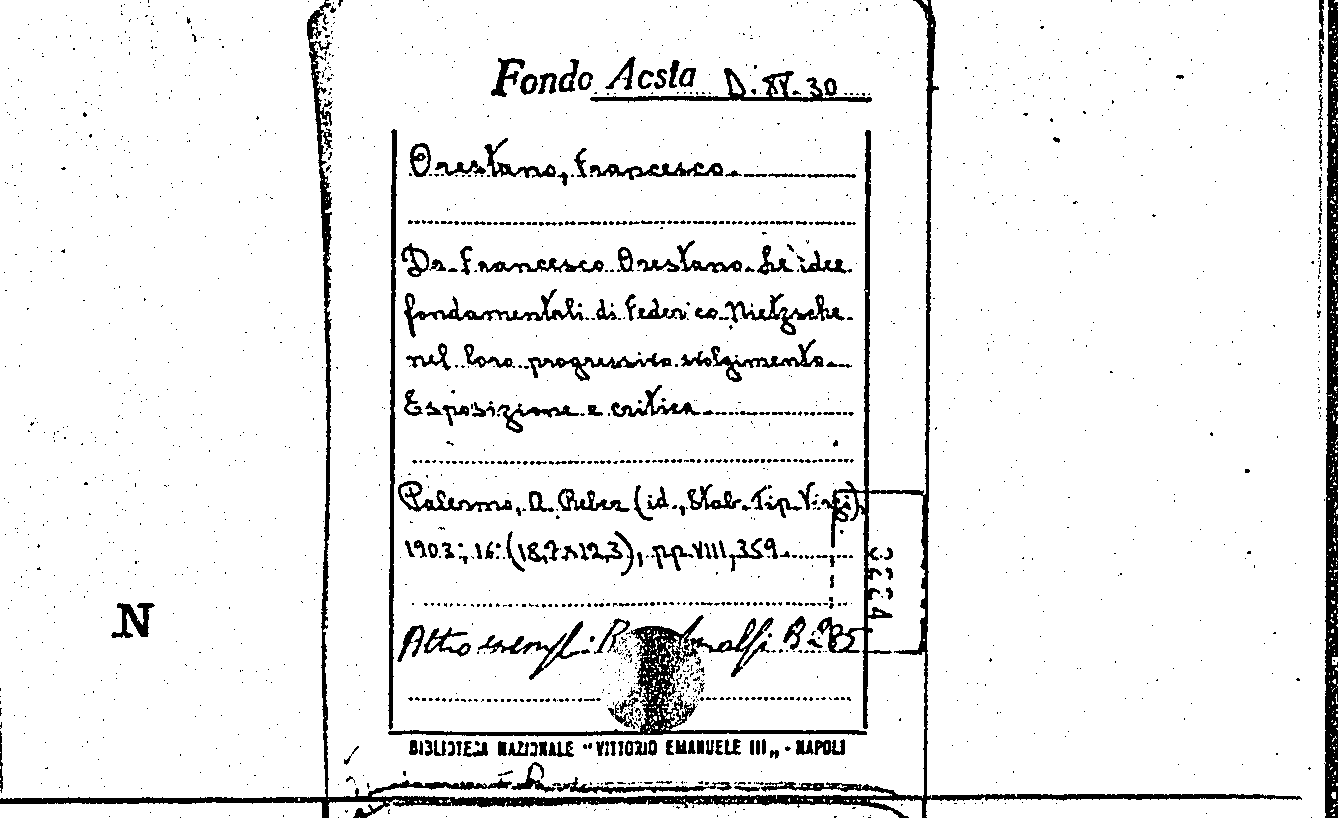 Fondo Aosta D. XV. 30
Orestano, Francesco.
Dr. Francesco Orestano. Le idee
fondamentali di Federico Nietzsche
nel loro progressivo svolgimento.
Esposizione e critica
Palermo, A. Reber (id., Stab. Tip. Virzì),
1903; 16° (18,7x12,3), pp. VIII, 359.
3224
N
Altro esempl.: B 285
BIBLIOTECA NAZIONALE "VITTORIO EMANUELE III" - NAPOLI